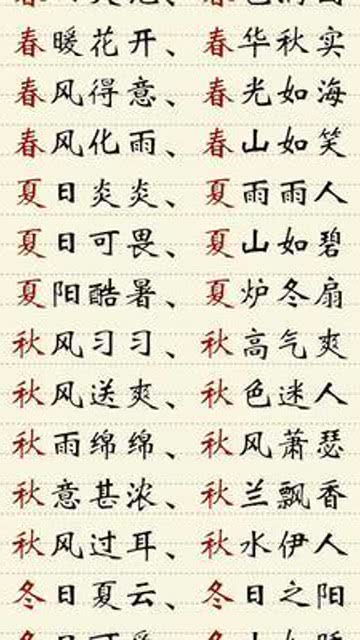 春暖花开、春华秋实
春风得意、春光如海
春风化雨、春山如笑
夏日炎炎、夏雨雨人
夏日可畏、夏山如碧
夏阳酷暑、夏炉冬扇
秋风习习、秋高气爽
秋风送爽、秋色迷人
秋雨绵绵、秋风萧瑟
秋意甚浓、秋兰飘香
秋风过耳、秋水伊人
冬日夏云、冬日之阳